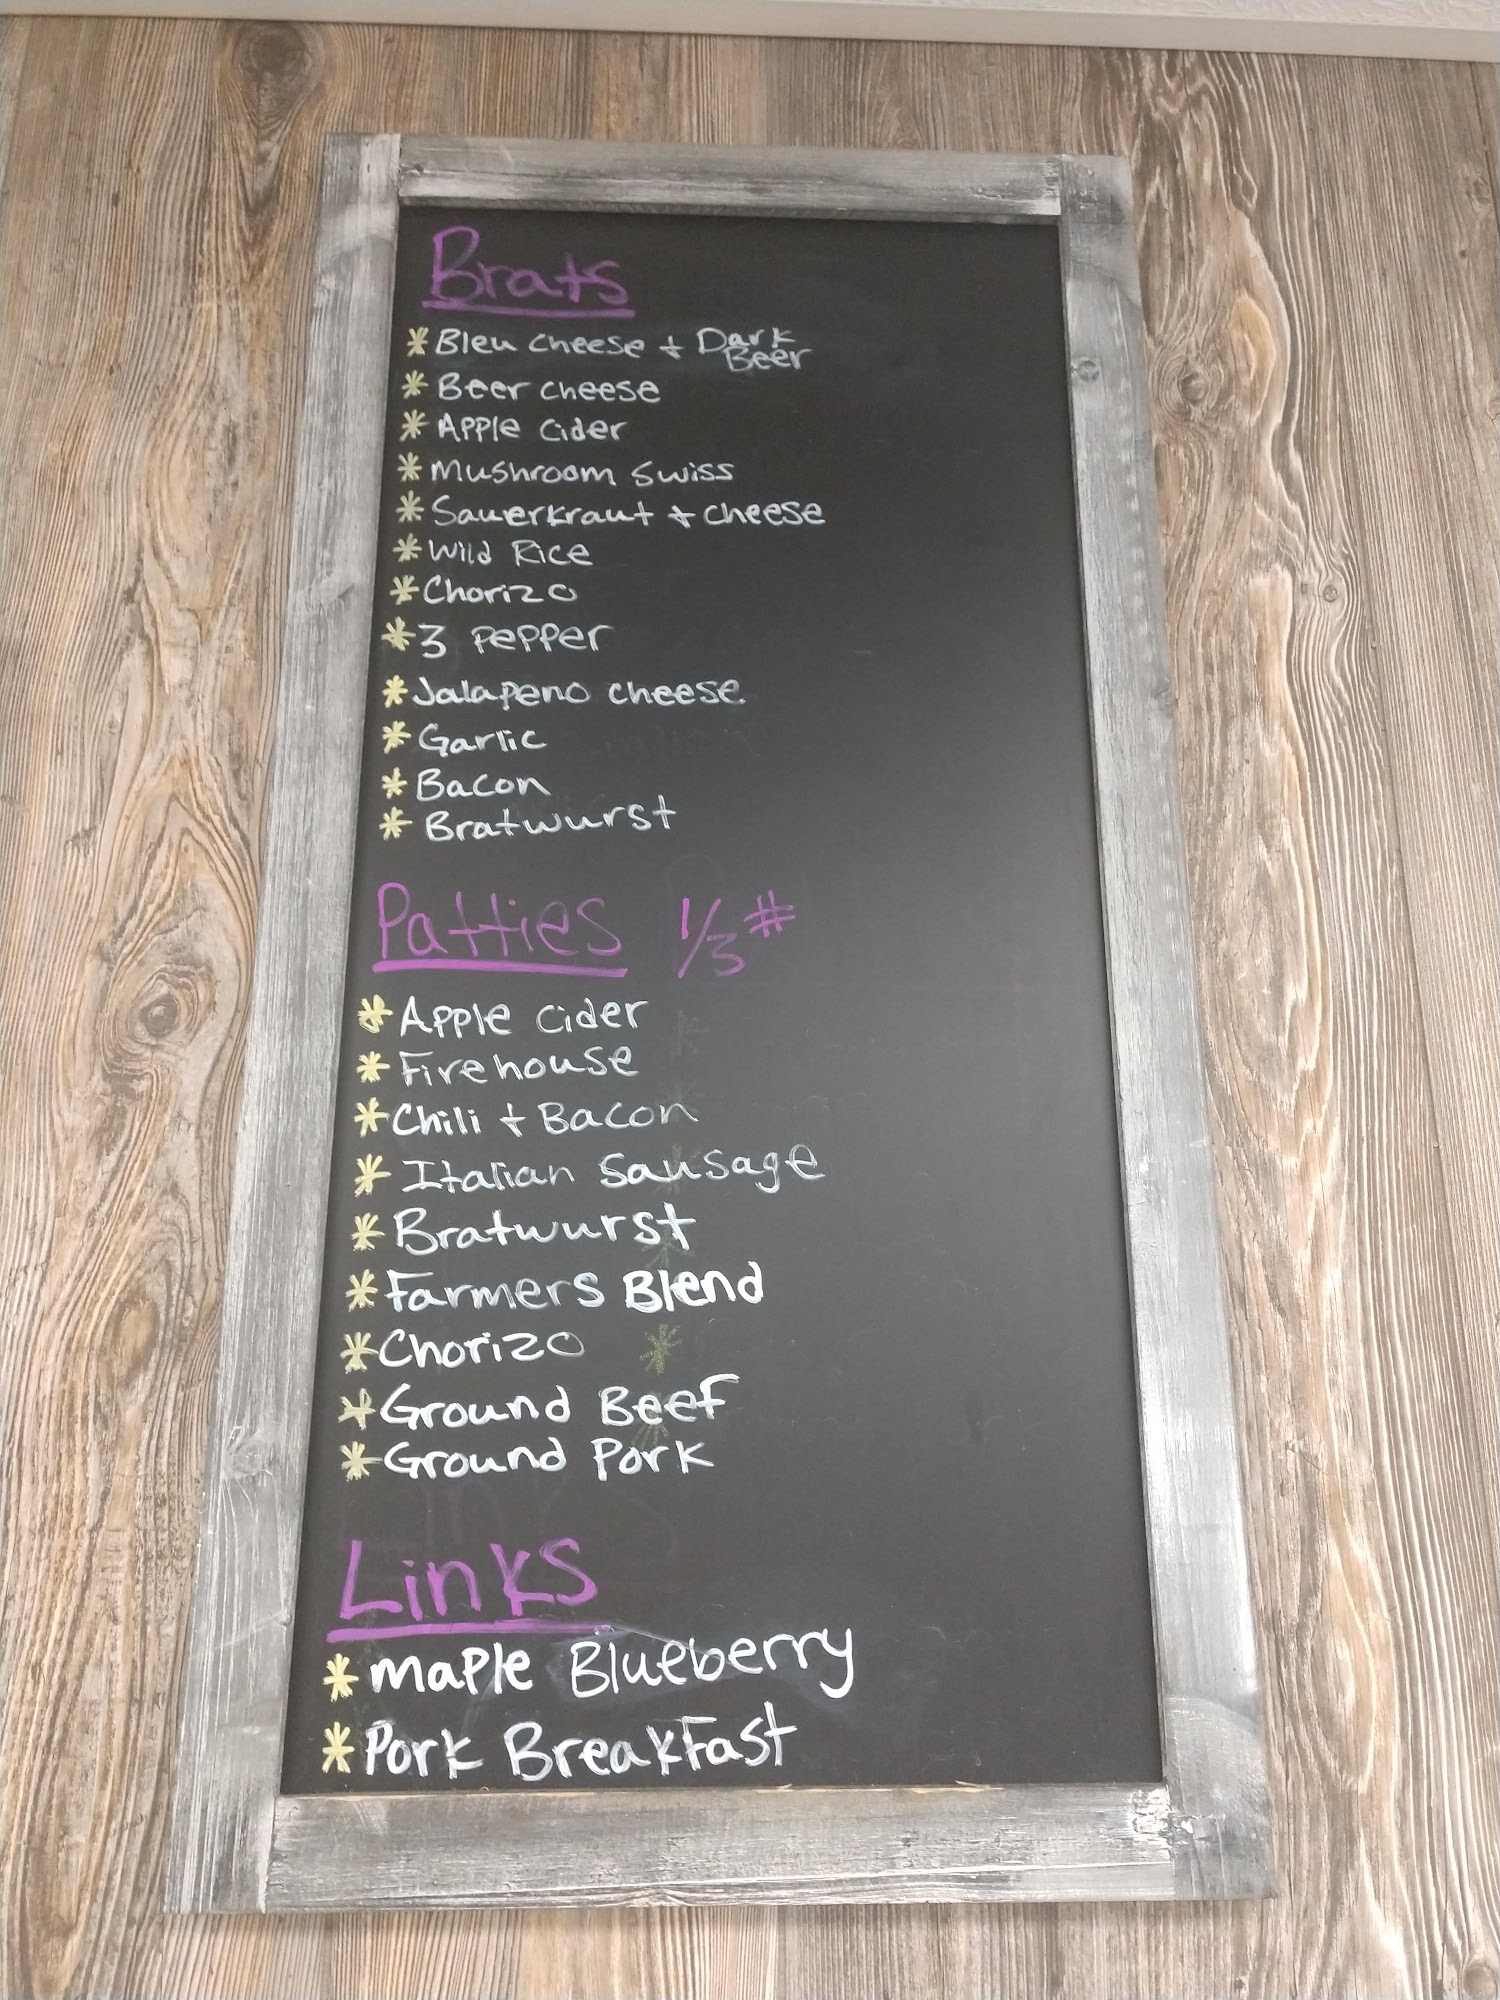 Brats
* Bleu Cheese + Dark Beer
* Beer cheese
* Apple Cider
* Mushroom Swiss
* Sauerkraut + cheese
* Wild Rice
* Chorizo
* 3 Pepper
* Jalapeno cheese
* Garlic
* Bacon
* Bratwurst
Patties 1/3 #
* Apple Cider
* Firehouse
* Chili + Bacon
* Italian Sausage
* Bratwurst
* Farmers Blend
* Chorizo
* Ground Beef
* Ground Pork
Links
* Maple Blueberry
* Pork Breakfast